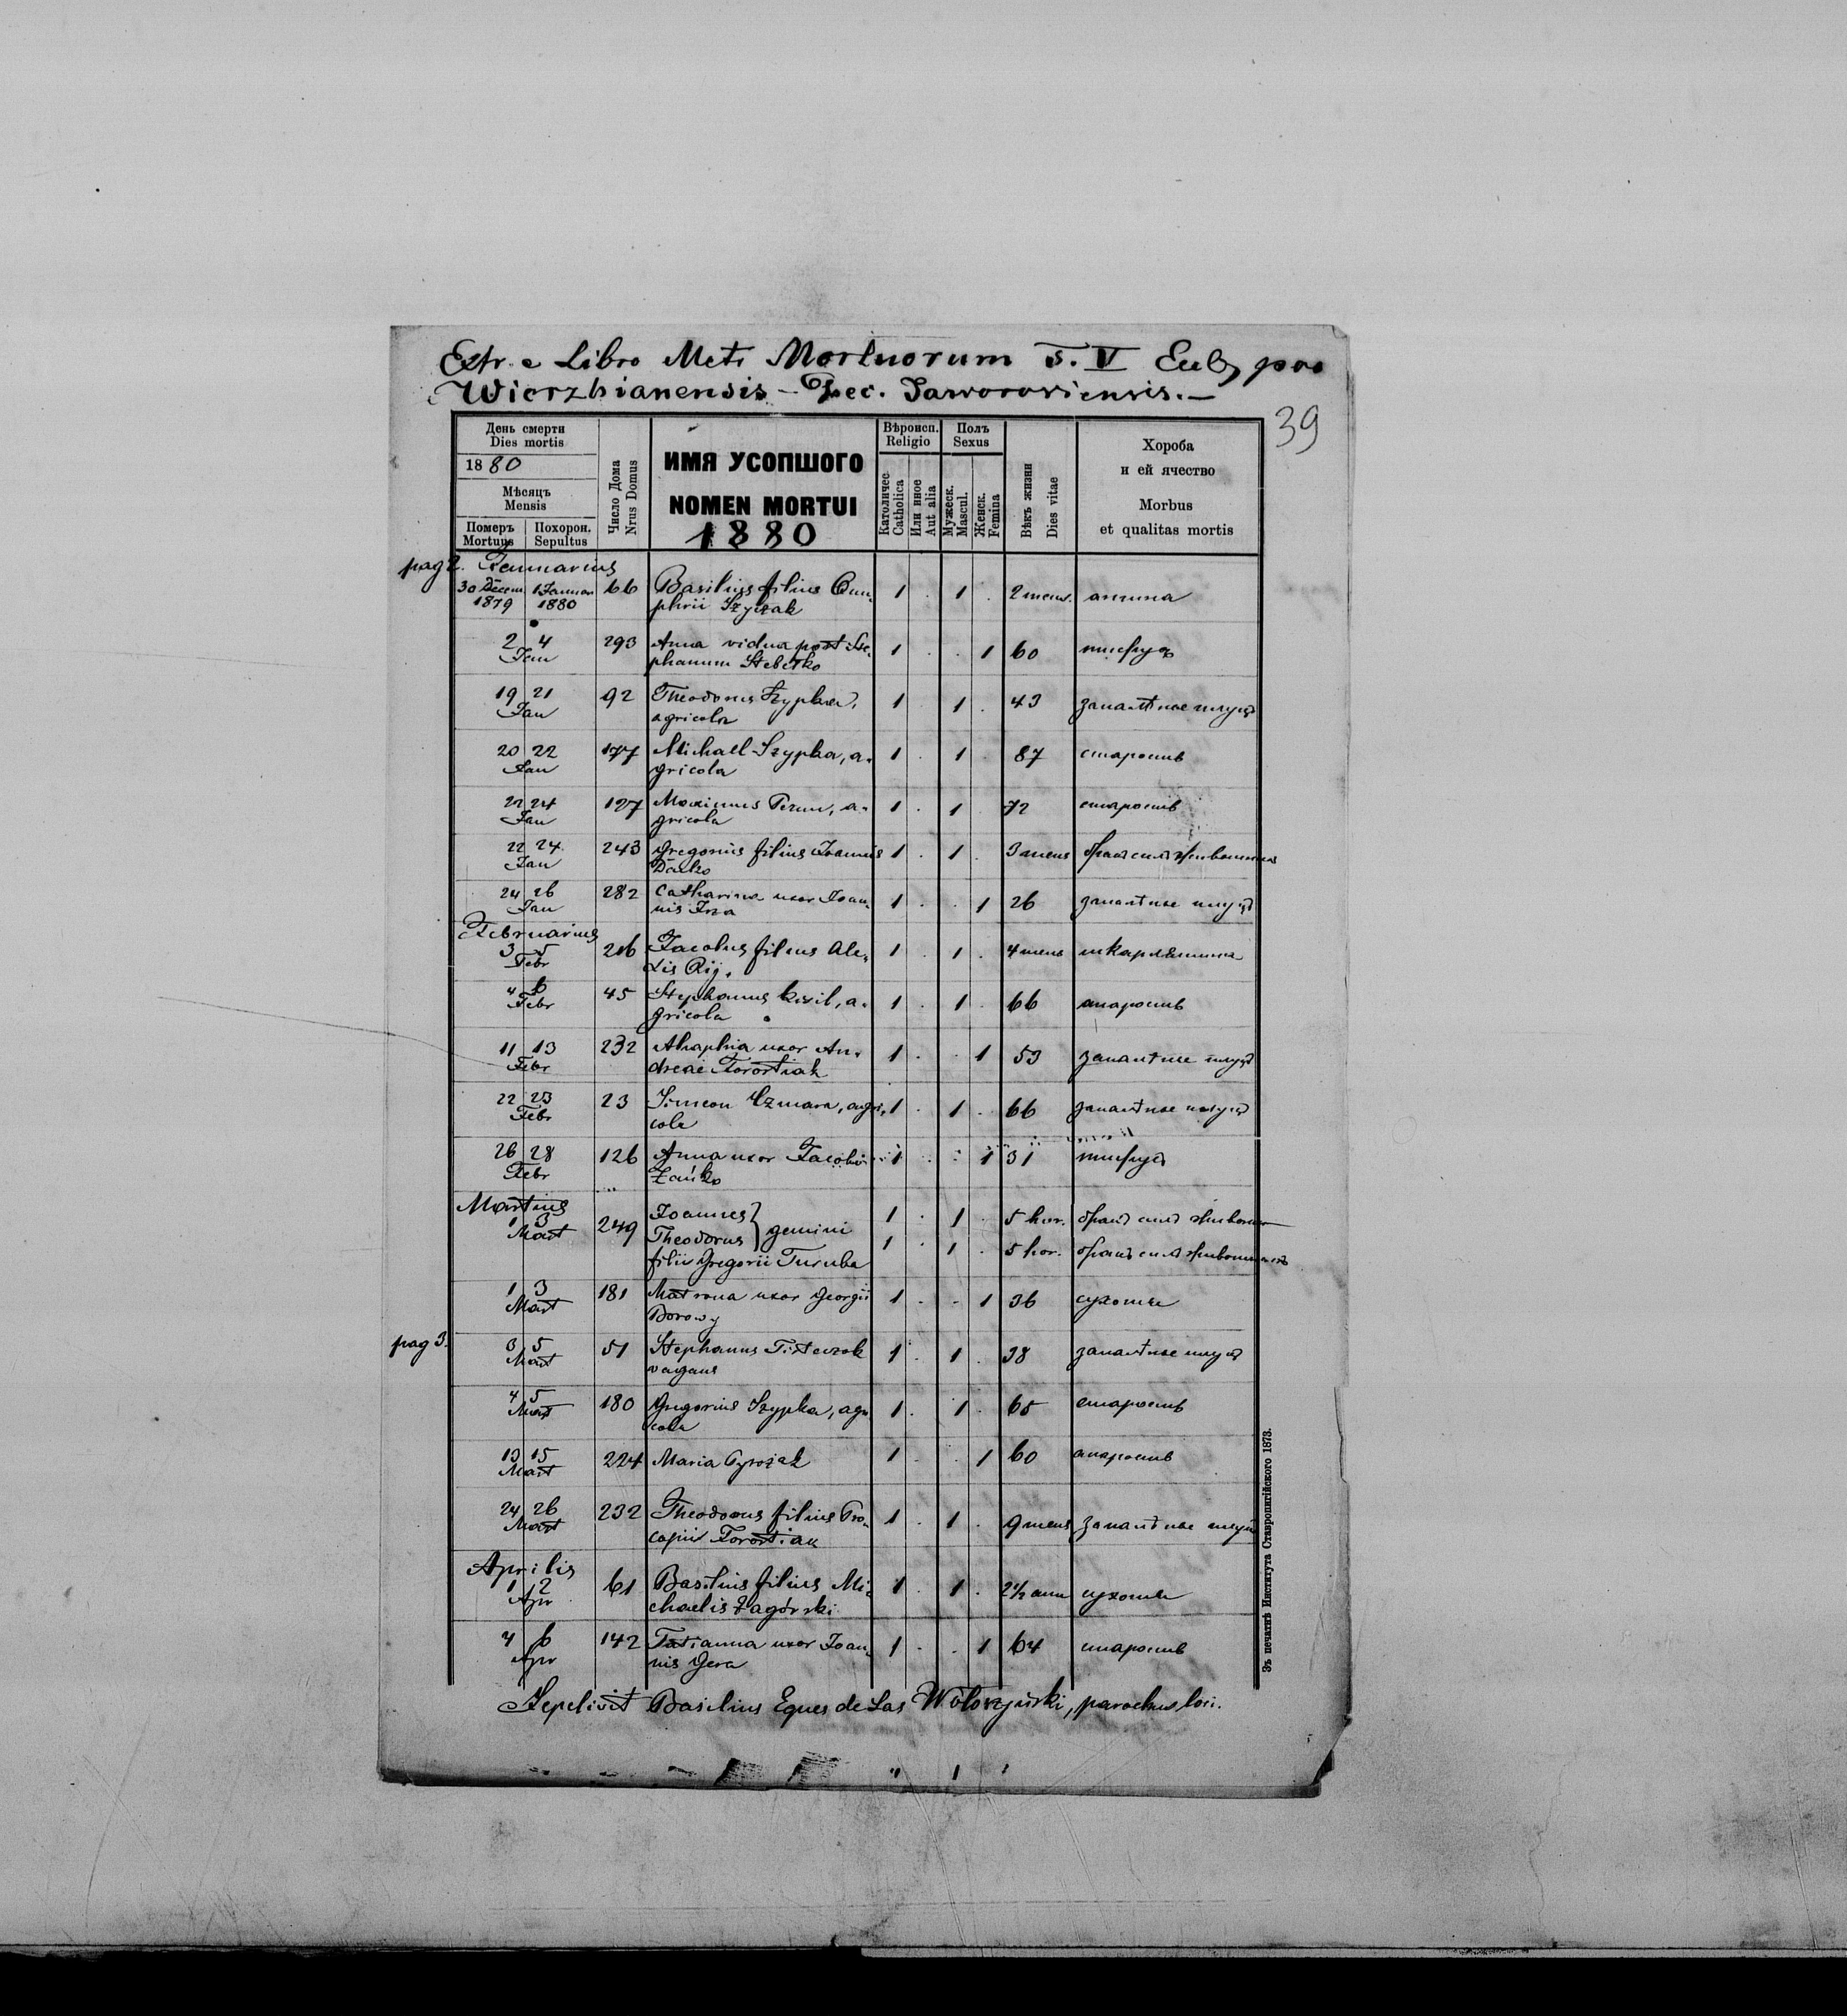 Extr. e Libro Metr Mortuorum T. V
Wierzbianensis - Dec. Jaworoviensis. -
39
День смерти
Dies mortis
1880
Мѣсяцъ
Mensis
Померъ
Mortuus
Похорон.
Sepultus
Число Дома
Nrus Domus
ИМЯ УСОПШОГО
NOMEN MORTUI
1880
Вѣроисп.
Religio
Католичес
Catholica
Или иное
Aut alia
Полъ
Sexus
Мужеск.
Mascul.
Женск.
Femina
Вѣкъ жизни
Dies vitae
Хороба
и ей ячество
Morbus
et qualitas mortis
pag 2. Januarius
30 Decem 1 Januar 66 Basilius filius Onu- 1 . 1 . 2 mens. ангина
1879 1880 phrii
2 4 293 Anna vidua post Ste- 1 . . 1 60 тифузъ
Jan phanum
19 21 92 Theodorus Szypka, 1 . 1 . 43 запалѣніе плуцъ
Jan agricola
20 22 177 Michael Szypka, a- 1 . 1 . 87 старость
Jan gricola
22 24 127 Maximus a- 1 . 1 . 72 старость
Jan gricola
22 24 243 Gregorius filius Joannis 1 . 1 . 3 mens бракъ силъ
Jan
24 26 282 Catharina uxor Joan- 1 . . 1 26 запалѣніе плуцъ
Jan nis
Februarius
3 5 216 Jacobus filius Ale- 1 . 1 . 4 mens шкарлятина
Febr xis Rij.
4 6 45 Stephanus Kizil, a- 1 . 1 . 66 старость
Febr gricola
11 13 232 Ahaphia uxor An- 1 . . 1 53 запалѣніе плуцъ
Febr dreae Forostiak
22 23 23 Simeon agri- 1 . 1 . 66 запалѣніе плуцъ
Febr cola
26 28 126 Anna uxor Jacobi 1 . . 1 31 тифузъ
Febr Zańko
Martius
1 3 249 Joannes } gemini 1 . 1 . 5 hor. бракъ силъ
Mart Theodorus 1 . 1 . 5 hor. бракъ силъ
filii Gregorii
1 3 181 Matrona uxor Georgii 1 . . 1 36 сухоты
Mart Borowy
pag 3.
3 5 51 Stephanus 1 . 1 . 38 запалѣніе плуцъ
Mart vagans
4 5 180 Gregorius Szypka, agri 1 . 1 . 65 старость
Mart cola
13 15 224 Maria Pyrożak 1 . . 1 60 старость
Mart
24 26 232 Theodorus filius Pro- 1 . 1 . 9 mens запалѣніе плуцъ
Mart copii Forostiak
Aprilis
1 2 61 Basilius filius Mi- 1 . 1 . 2½ ann сухоты
Apr chaelis Zagórski
4 6 142 Tatianna uxor Joan- 1 . . 1 64 старость
Apr nis Gera
Sepelivit Basilius Eques de Las Wołoszyński, parochus loci.
Зъ печатнѣ Института Ставропигійского 1873.